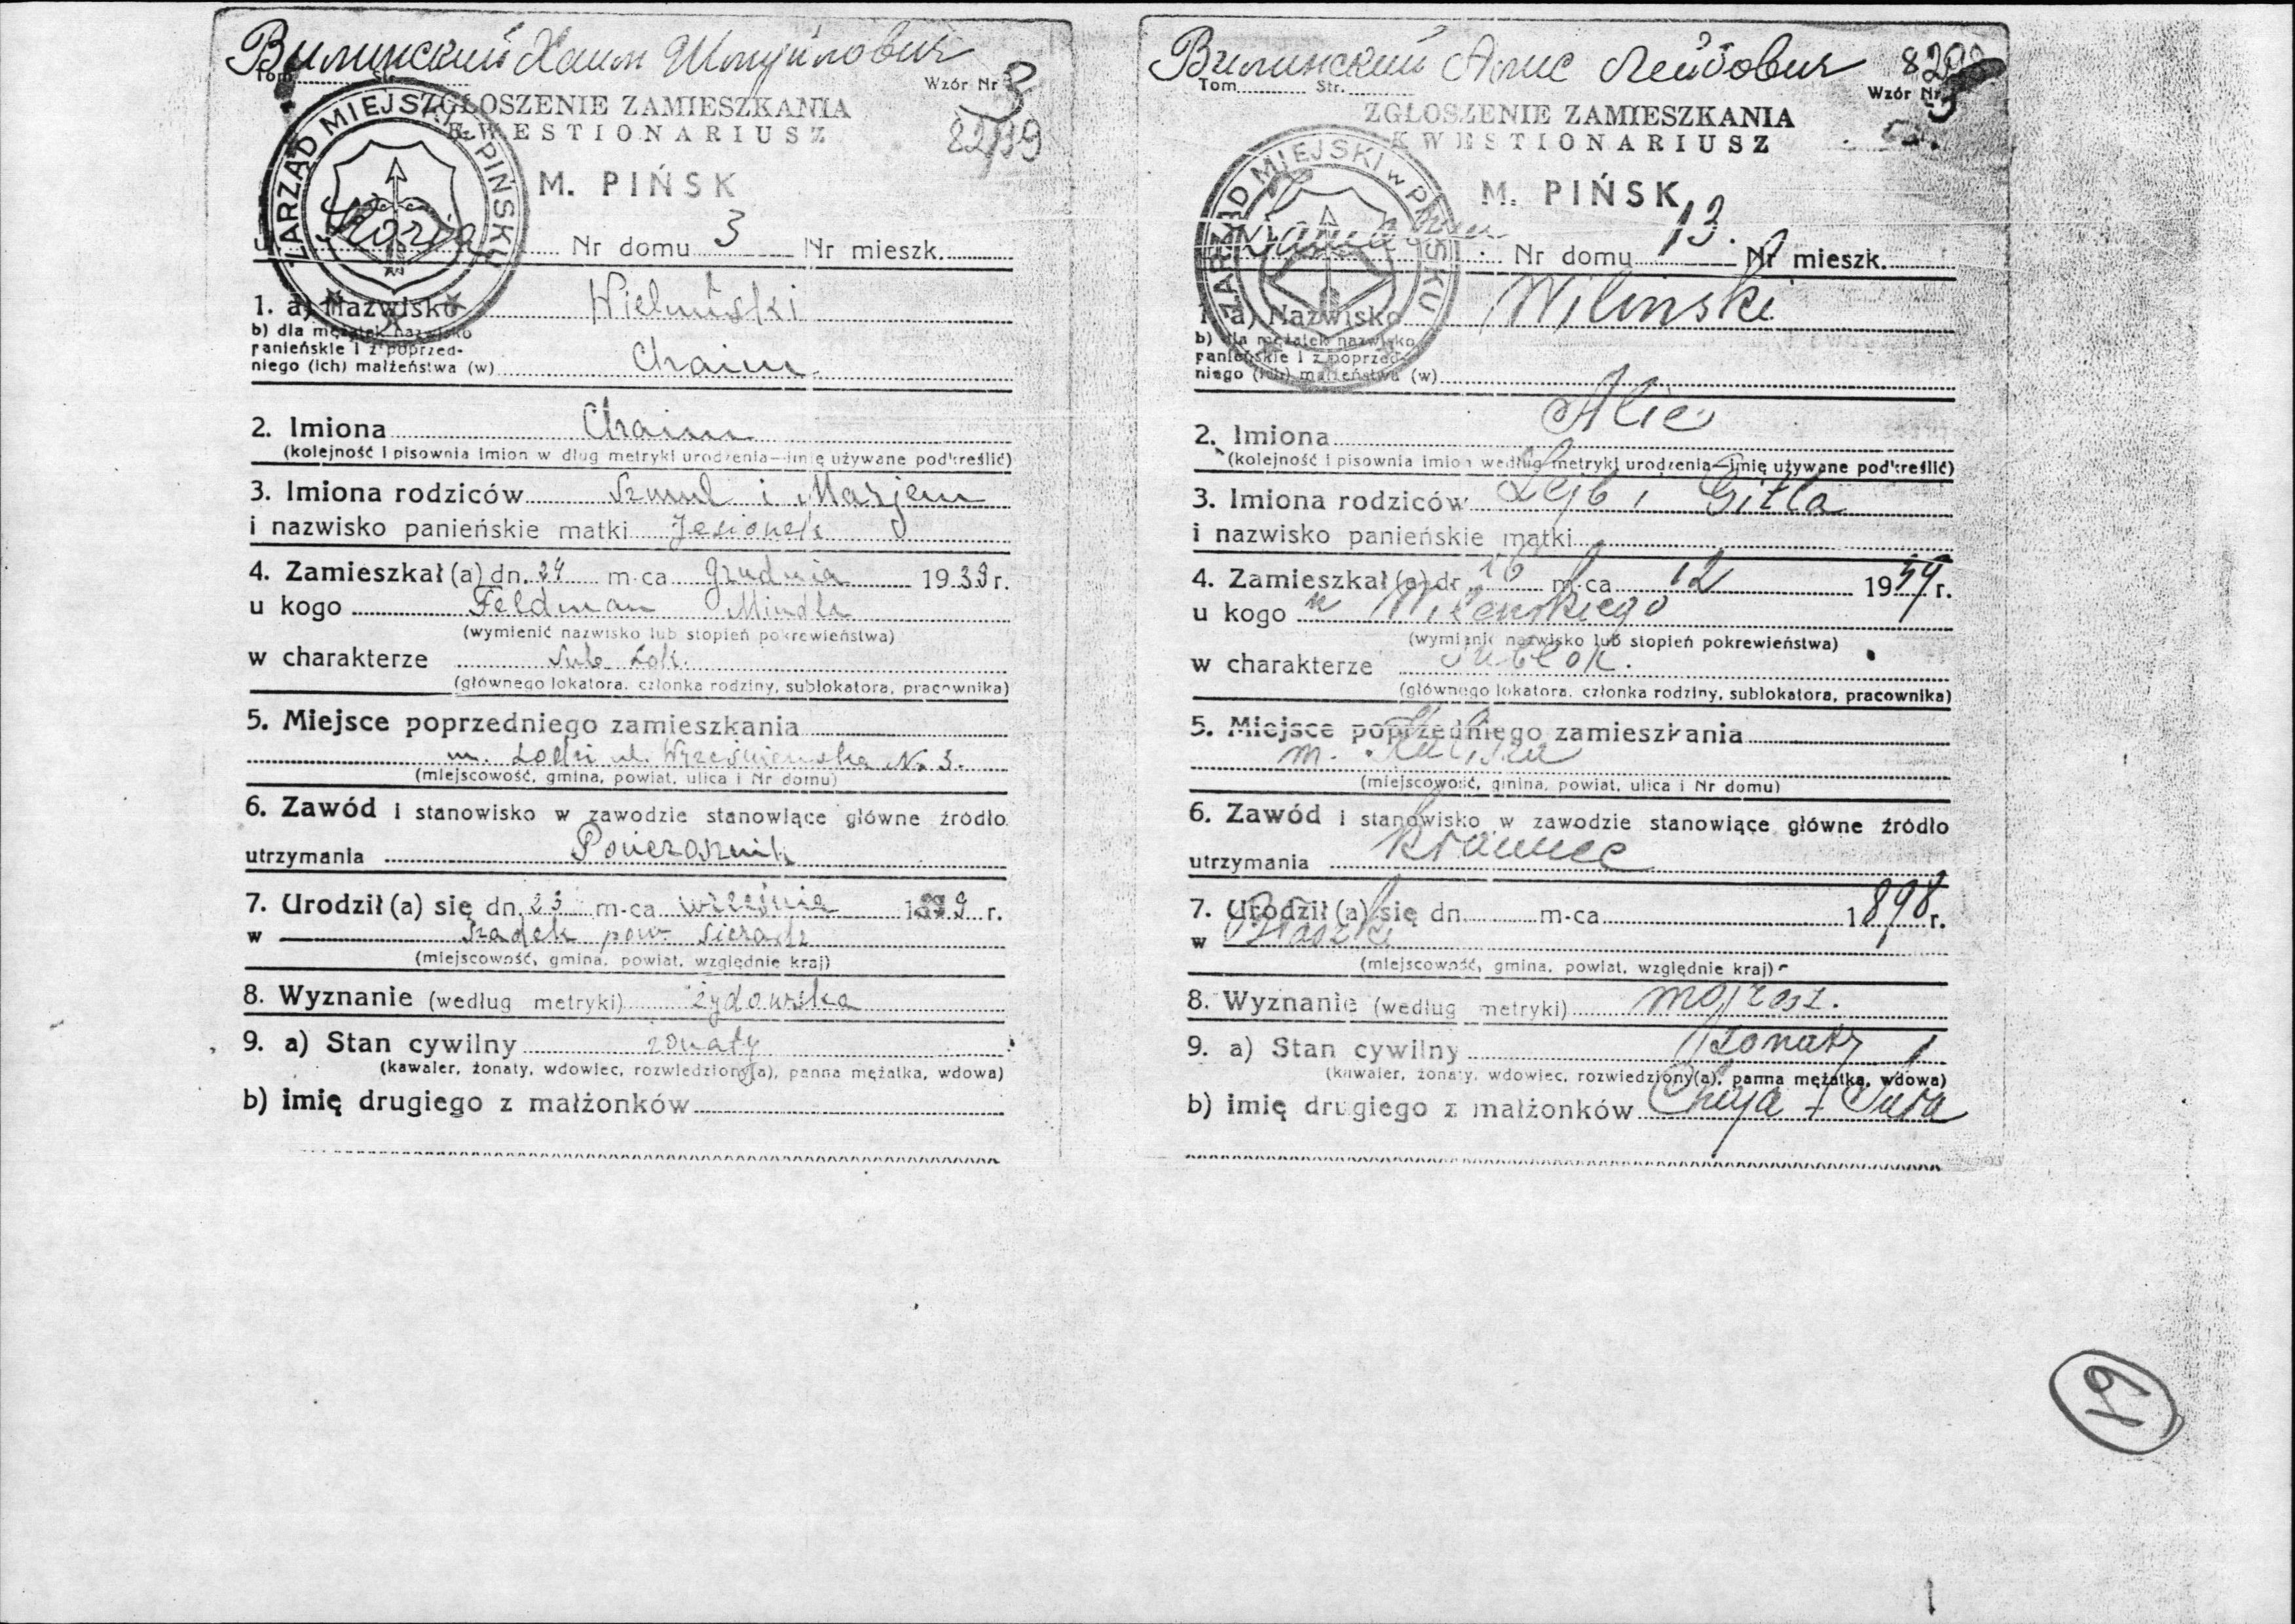 Вилинский Хаим Шмуйлович
Tom Str. Wzór Nr 3
ZGŁOSZENIE ZAMIESZKANIA
KWESTIONARIUSZ
8299
ZARZĄD MIEJSKI w PIŃSKU
M. PIŃSK
u. Nr domu 3 Nr mieszk.
1. a) Nazwisko Wieluński
b) dla mężatek nazwisko
panieńskie i z poprzed-
niego (ich) małżeństwa (w) Chaim
2. Imiona Chaim
(kolejność i pisownia imion w dług metryki urodzenia—imię używane podkreślić)
3. Imiona rodziców Szmul i Marjem
i nazwisko panieńskie matki Jesionek
4. Zamieszkał (a) dn. 24 m-ca grudnia 1939 r.
u kogo Feldman Mindla
(wymienić nazwisko lub stopień pokrewieństwa)
w charakterze Sub Lok.
(głównego lokatora, członka rodziny, sublokatora, pracownika)
5. Miejsce poprzedniego zamieszkania
m. Łodzi ul. Wrześnieńska No 3.
(miejscowość, gmina, powiat, ulica i Nr domu)
6. Zawód i stanowisko w zawodzie stanowiące główne źródło
utrzymania Pończosznik
7. Urodził (a) się dn. 23 m-ca września 1899 r.
w Szadek pow. Sieradz
(miejscowość, gmina, powiat, względnie kraj)
8. Wyznanie (według metryki) żydowska
9. a) Stan cywilny żonaty
(kawaler, żonaty, wdowiec, rozwiedziony(a), panna mężatka, wdowa)
b) imię drugiego z małżonków
Вилинский Алис Лейбович 8298
Tom Str. Wzór Nr 3
ZGŁOSZENIE ZAMIESZKANIA
KWESTIONARIUSZ
ZARZĄD MIEJSKI w PIŃSKU
M. PIŃSK
Nr domu 13. Nr mieszk.
1. a) Nazwisko Wilinski
b) dla mężatek nazwisko
panieńskie i z poprzed-
niego (ich) małżeństwa (w)
2. Imiona Alie
(kolejność i pisownia imion według metryki urodzenia—imię używane podkreślić)
3. Imiona rodziców Lejb i Gitla
i nazwisko panieńskie matki
4. Zamieszkał (a) dn. 16 m-ca 12 1939 r.
u kogo u Wilenskiego
(wymienić nazwisko lub stopień pokrewieństwa)
w charakterze Sublok.
(głównego lokatora, członka rodziny, sublokatora, pracownika)
5. Miejsce poprzedniego zamieszkania
m. Kalisza
(miejscowość, gmina, powiat, ulica i Nr domu)
6. Zawód i stanowisko w zawodzie stanowiące główne źródło
utrzymania Krawiec
7. Urodził (a) się dn. m-ca 1898 r.
w Błaszki
(miejscowość, gmina, powiat, względnie kraj)
8. Wyznanie (według metryki) mojżesz.
9. a) Stan cywilny żonaty
(kawaler, żonaty, wdowiec, rozwiedziony(a), panna mężatka, wdowa)
b) imię drugiego z małżonków Chaja - Sura
19